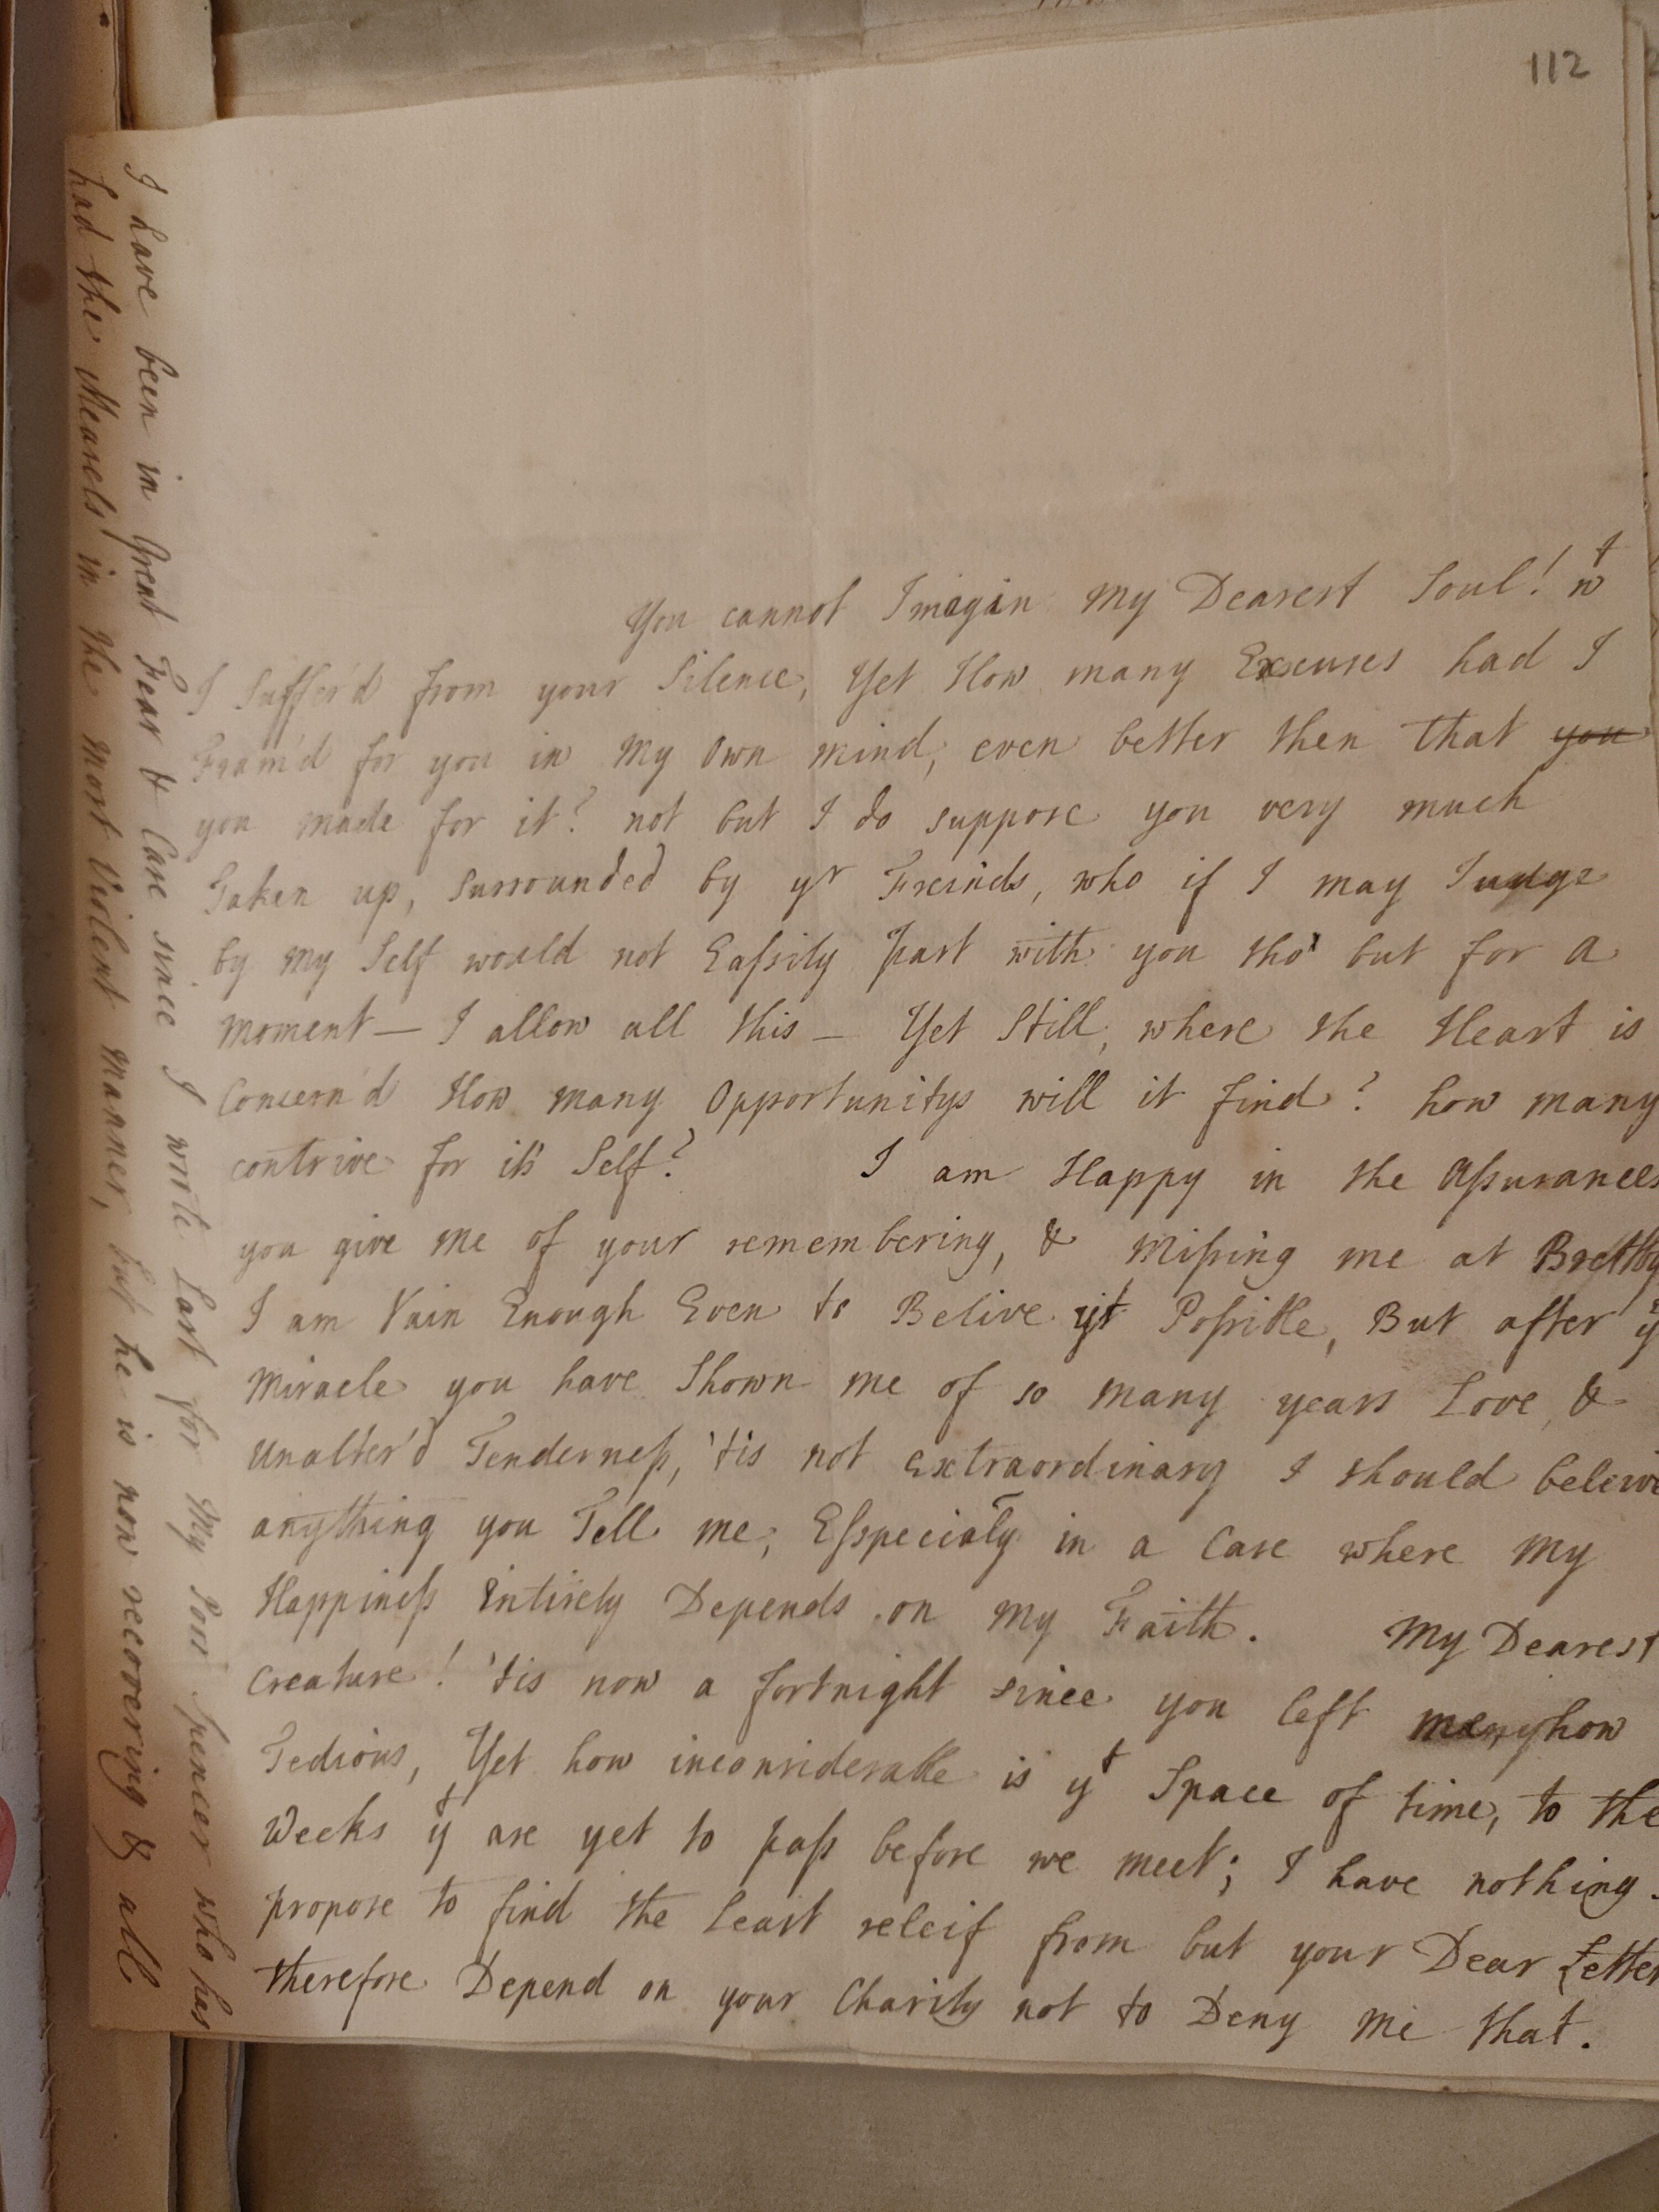 112
You cannot Imagin My Dearest Soul! wt
I Suffer'd from your Silence, Yet How many Excuses had I
Fram'd for you in My Own mind, even better then that you
you made for it? not but I do suppose you very much
Taken up, Surrounded by yr Freinds, who if I may Iudge
by My Self would not Eassily part with you tho' but for a
moment — I allow all this — Yet Still, where the Heart is
Concern'd How many Opportunitys will it find? how many
contrive for it's Self? I am Happy in the Assurances
you give me of your remembering, & Missing me at Brettby
I am Vain Enough Even to Belive yt Possible, But after ye
Miracle you have Shown me of so many years Love, &
Unalter'd Tenderness, 'tis not extraordinary I should beleive
anything you Tell me, Esspecialy in a Case where My
Happiness Entirely Depends on My Faith. My Dearest
Creature! 'tis now a fortnight since you left how
Tedious, Yet how inconsiderable is yt Space of time, to the
Weeks yt are yet to pass before we meet; I have nothing
propose to find the Least releif from but your Dear Letter
therefore Depend on your Charity not to Deny Me that.
I have been in Great Fear & Care since I wrote Last for My Son Spencer who has
had the Measels in the most Violent manner, but he is now recovering & all